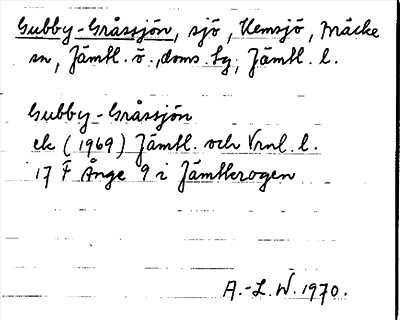 Gubby-Gråssjön, sjö, Kemsjö, Bräcke
sn, Jämtl. ö., doms. tg, Jämtl. l.
Gubby-Gråssjön
ek (1969) Jämtl. och Vrnl. l.
17 F Ånge 9 i Jämtkrogen
A.-L. W. 1970.